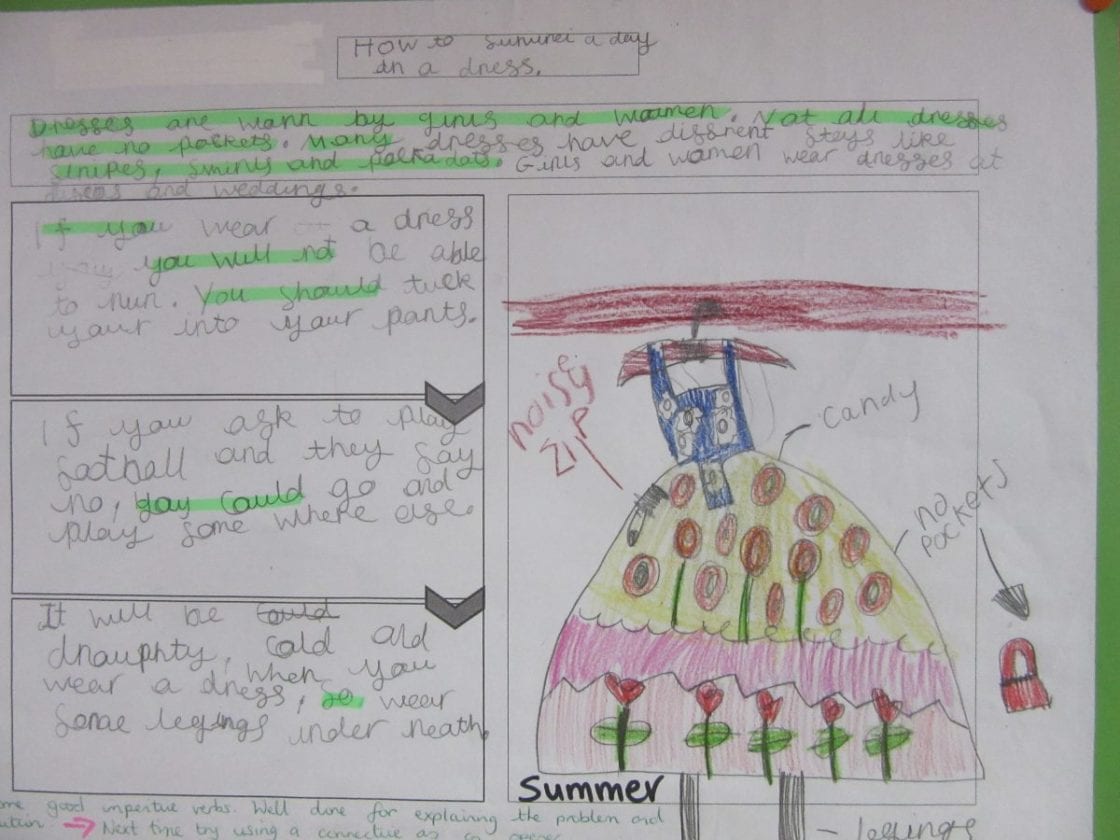 How to survive a day
in a dress.
Dresses are warn by girls and woamen. Not all dresses
have no pockets. Many dresses have diffrent Styls like
stripes, swirls and polka dots. Girls and women wear dresses at
discos and weddings.
If you wear a dress
you will not be able
to run. You should tuck
your into your pants.
If you ask to play
football and they say
no, you could go and
play some where else.
It will be could
draughty, cold and
when you
wear a dress, so wear
some legings under neath.
noisy
ZIP
candy
no
pockets
Summer
leggings
good impertive verbs. Well done for explaining the problem and
Next time try using a connective as